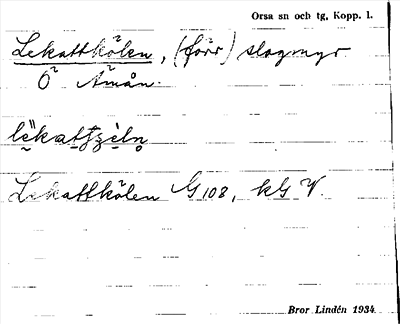 Orsa sn och tg, Kopp. l.
Lekattkölen, (förr) slogmyr
Ö Åmån.
Lekattkölen G 108, kG V.
Bror Lindén 1934